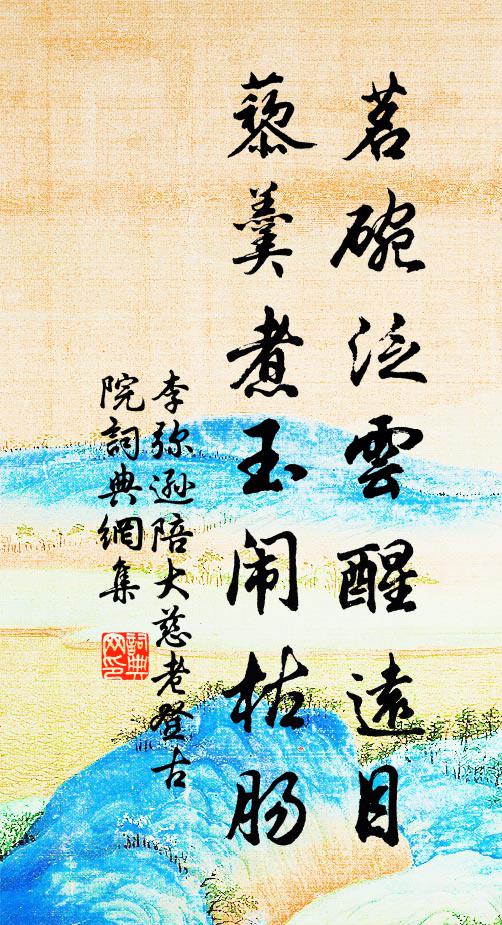 茗碗泛雲醒遠目
藜羹煮玉闹枯肠
李弥逊陪大慈老登古
院詞典網集
詞典網印